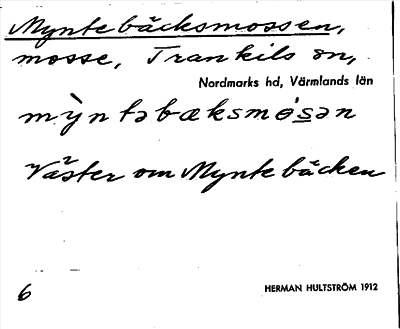 Myntebäcksmossen,
mosse, Trankils sn,
Nordmarks hd, Värmlands län
mỳntəbæksmósən
Väster om Myntebäcken
6 HERMAN HULTSTRÖM 1912